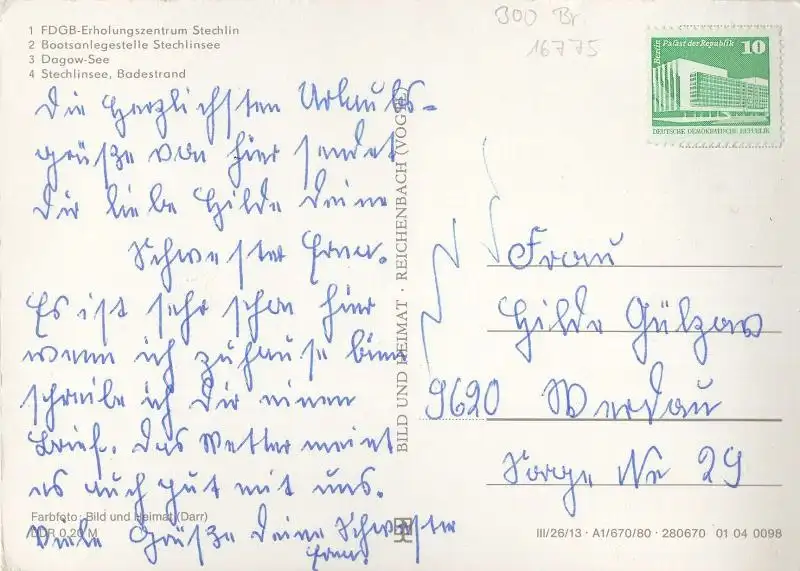 1 FDGB-Erholungszentrum Stechlin
2 Bootsanlegestelle Stechlinsee
3 Dagow-See
4 Stechlinsee, Badestrand
300 Br.
16775
Berlin, Palast der Republik 10
DEUTSCHE DEMOKRATISCHE REPUBLIK
Die Herzlichsten Urlaubs-
grüße von hier sendet
Dir liebe Hilde Deine
Schwester Erna.
Es ist sehr schön hier
wenn ich zuhause binn
schreibe ich Dir einen
Brief. Das Wetter meint
es auch gut mit uns.
Viele Grüße Deine Schwester
Erna.
BILD UND HEIMAT · REICHENBACH (VOGTL)
Frau
Hilde Gülzow
9620 Werdau
Sorge Nr 29
Farbfoto: Bild und Heimat (Darr)
DDR 0,20 M
III/26/13 · A1/670/80 · 280670 01 04 0098